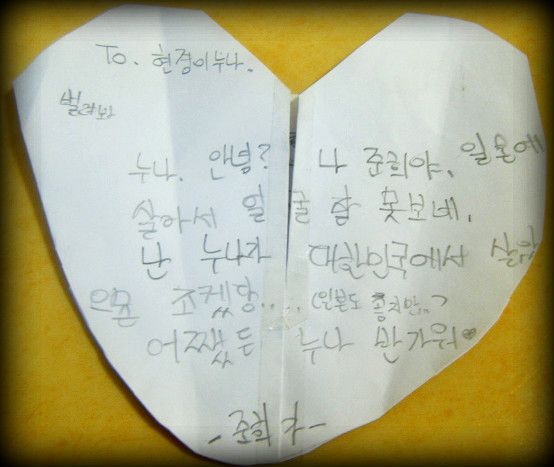 To. 현경이누나.
벌려봐
누나. 안녕? 나 준희야. 일본에
살아서 얼굴 잘 못보네.
난 누나가 대한민국에서 살았
으면 조켔당.... (일본도 좋지만..)
어쨌든 누나 반가워♥
- 준희가 -